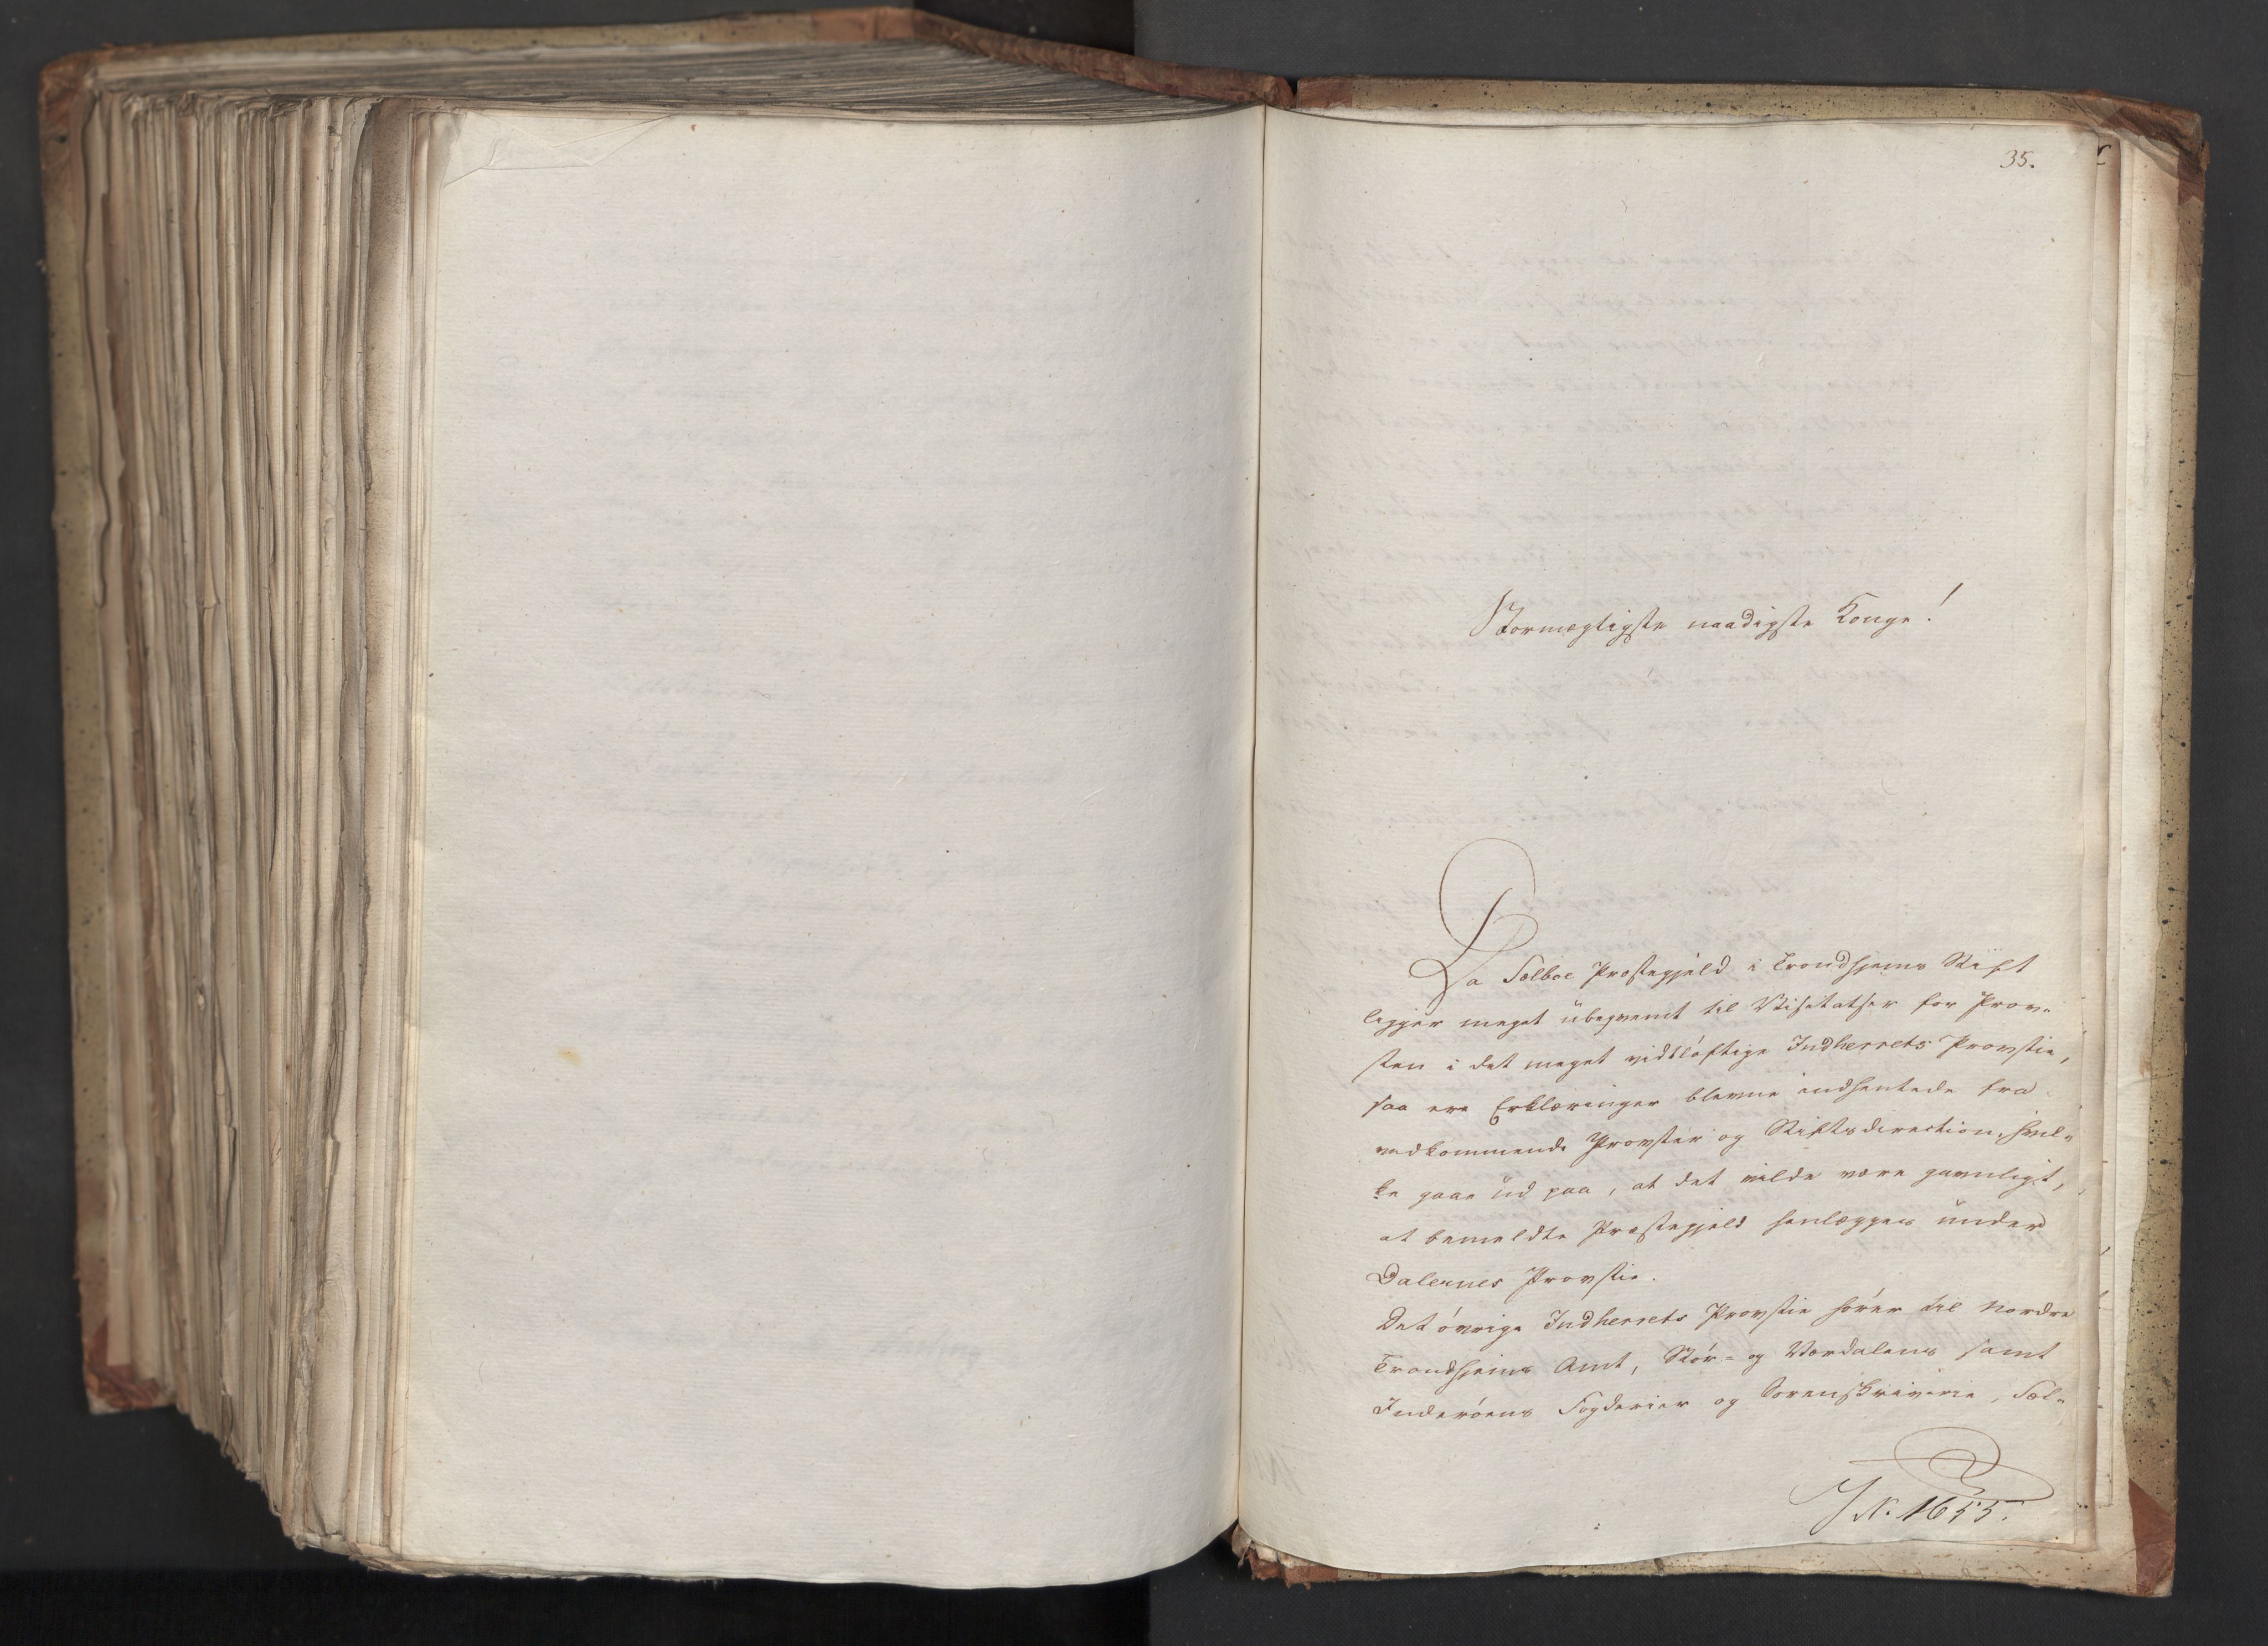 35.
Stormægtigste naadigste Konge!
Da Selboe Præstegjeld i Trondhjems Stift
ligger meget übeqvemt til Visitatser for Prov=
sten i det meget vidtløftige Indherrets Provstie,
saa ere Erklæringer blevne indhentede fra
vedkommende Provster og Stiftsdirection, hvil=
ke gaae üd paa, at det vilde være gavnligt,
at bemeldte Præstegjeld henlægges ünder
Dalernes Provstie.
Det øvrige Indherrets Provstie hører til Nordre
Trondhjems Amt, Stør= og Værdalens samt
Inderøens Fogderier og Sorenskriverie, Sel=
N. 1655.